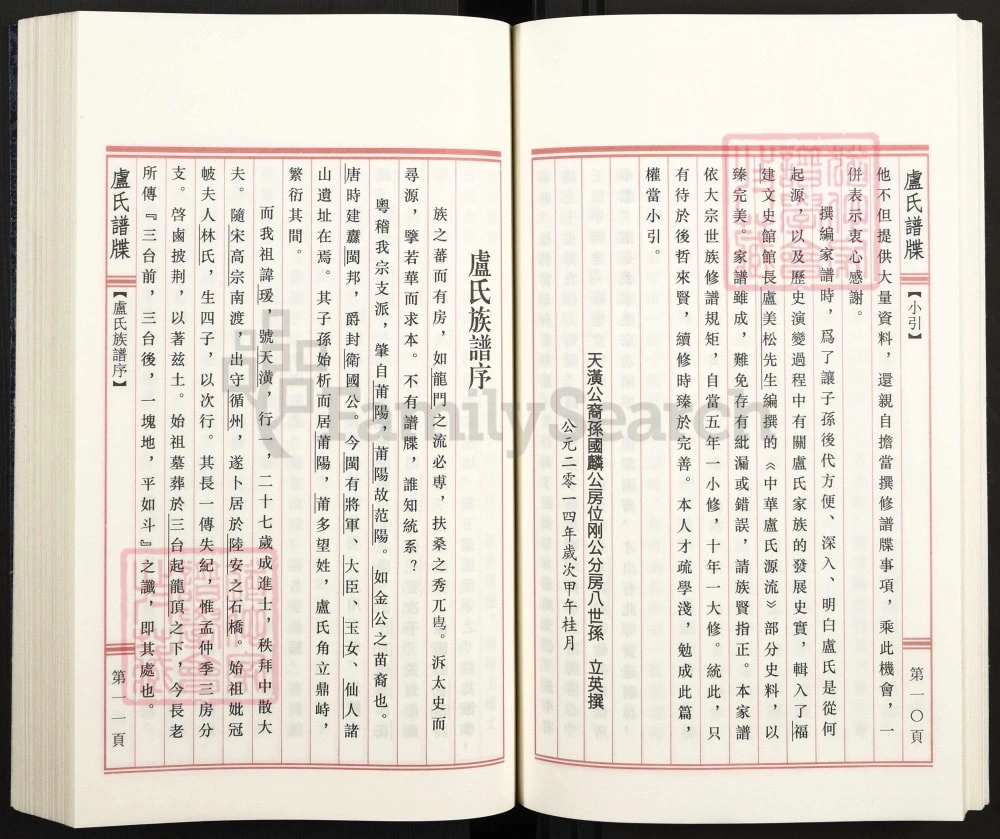 盧氏譜牒
【小引】
第一〇頁
他不但提供大量資料，還親自擔當撰修譜牒事項，乘此機會，一
併表示衷心感謝。
撰編家譜時，爲了讓子孫後代方便、深入、明白盧氏是從何
起源，以及歷史演變過程中有關盧氏家族的發展史實，輯入了福
建文史館館長盧美松先生編撰的《中華盧氏源流》部分史料，以
臻完美。家譜雖成，難免存有紕漏或錯誤，請族賢指正。本家譜
依大宗世族修譜規矩，自當五年一小修，十年一大修。統此，只
有待於後哲來賢，續修時臻於完善。本人才疏學淺，勉成此篇，
權當小引。
天潢公裔孫國麟公房位剛公分房八世孫 立英撰
公元二零一四年歲次甲午桂月
盧氏族譜序
族之蕃而有房，如龍門之流必専，扶桑之秀兀鳥。泝太史而
尋源，擥若華而求本。不有譜牒，誰知統系？
粵稽我宗支派，肇自莆陽，莆陽故范陽。如金公之苗裔也。
唐時建纛閩邦，爵封衛國公。今閩有將軍、大臣、玉女、仙人諸
山遺址在焉。其子孫始析而居莆陽，莆多望姓，盧氏角立鼎峙，
繁衍其間。
而我祖諱瑗，號天潢，行一，二十七歲成進士，秩拜中散大
夫。隨宋高宗南渡，出守循州，遂卜居於陸安之石橋。始祖妣冠
帔夫人林氏，生四子，以次行。其長一傳失紀，惟孟仲季三房分
支。啓鹵披荆，以著茲土。始祖墓葬於三台起龍頂之下，今長老
所傳『三台前，三台後，一塊地，平如斗』之讖，即其處也。
盧氏譜牒
【盧氏族譜序】
第一一頁
FamilySearch